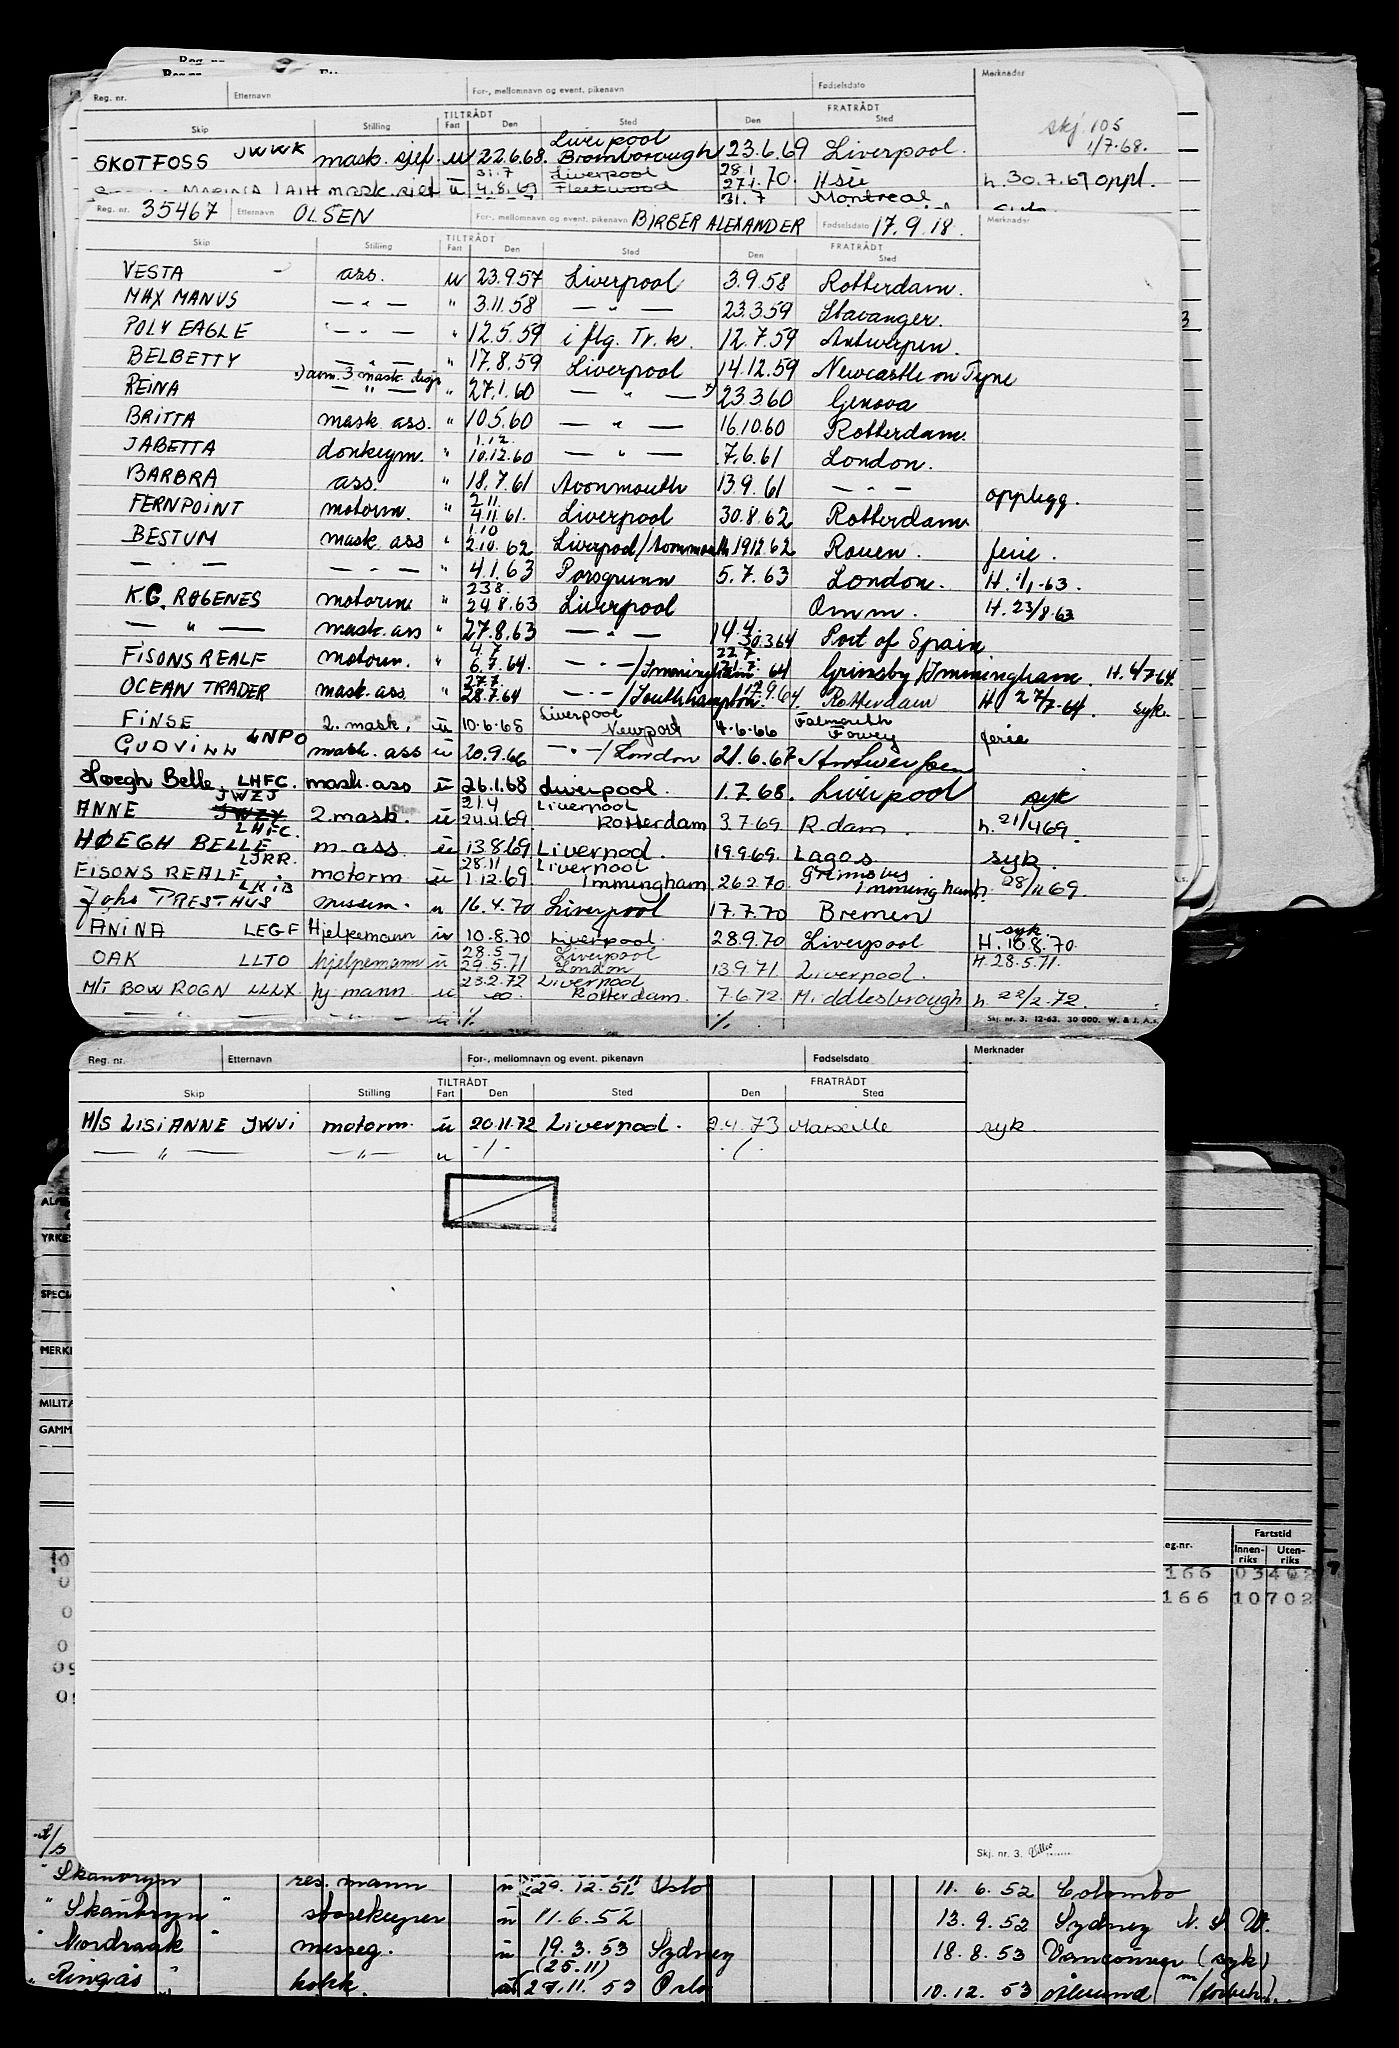 Reg. nr. Etternavn For-, mellomnavn og event. pikenavn Fødselsdato Merknader
TILTRÅDT FRATRÅDT
Skip Stilling Fart Den Sted Den Sted
skj. 105
1/7-68.
SKOTFOSS JWWK mask. sjef. u 22.6.68. Liverpool Bromborough 23.6.69 Liverpool.
31.7 4.8.69 Liverpool Fleetwood 28.1 27.1.70. h. 30.7.69 oppl.
31.7 Montreal
Reg. nr. 35467 Etternavn OLSEN For-, mellomnavn og event. pikenavn BIRGER ALEXANDER Fødselsdato 17.9.18. Merknader
TILTRÅDT FRATRÅDT
Skip Stilling Fart Den Sted Den Sted
VESTA - ass. u 23.9.57 Liverpool 3.9.58 Rotterdam.
MAX MANUS — " — " 3.11.58 — " — 23.3.59 Stavanger.
POLY EAGLE — " — " 12.5.59 i flg. Tr. k. 12.7.59 Antwerpen.
BELBETTY — " — " 17.8.59 Liverpool 14.12.59 Newcastle on Tyne
REINA x) avm. 3 mask. disp — " — " 27.1.60 — " — x) 23.3.60 Genova
BRITTA mask. ass. " 10.5.60 — " — 16.10.60 Rotterdam.
JABETTA donkeym. " 1.12. 10.12.60 — " — 7.6.61 London.
BARBRA ass. " 18.7.61 Avonmouth 13.9.61 — " — opplegg.
FERNPOINT motorm. " 2.11 4.11.61. Liverpool 30.8.62 Rotterdam
BESTUM mask. ass " 1.10 2.10.62 Liverpool/Avonmouth 19.12.62 Rouen. ferie.
— " — — " — " 4.1.63 Porsgrunn 5.7.63 London. H. 1/1-63.
K.G. ROGENES motorm. " 23.8. 24.8.63 Liverpool Omm. H. 23/8-63
— " — mask. ass " 27.8.63 — " — 14.4. 30.3.64 Port of Spain
FISONS REALF motorm. " 4.7 6.7.64. — " —/Immingham 22.7 21.7.64 Grimsby/Immingham. H. 4/7-64.
OCEAN TRADER mask. ass. " 27.7. 28.7.64 — " —/Southhampton 9.64. Rotterdam H 27/7-64. syk.
FINSE 2. mask. u 10-6-65 Liverpool Newport 4-6-66 Falmouth Fowey ferie
GUDVINN LNPO mask. ass u 20.9.66 — " —/London 21.6.67 Antwerpen
Høegh Belle LHFC. mask. ass u 26.1.68 Liverpool. 1.7.68. Liverpool syk
ANNE JWZJ JWZY 2. mask. u 21.4 24.4.69 Liverpool Rotterdam 3.7.69 R.dam. h. 21/4 69
HØEGH BELLE LHFC. m. ass u 13.8.69 Liverpool. 19.9.69. Lagos syk.
FISONS REALF LJRR. motorm u 28.11 1.12.69 Liverpool Immingham. 26.2.70 Grimsby Immingham h. 28/11 69.
John PRESTHUS LKIB messem. u 16.4.70 Liverpool 17.7.70 Bremen
ANINA LEGF Hjelpemann u 10.8.70 Liverpool. 28.9.70 Liverpool syk. H. 10.8.70.
OAK LLTO hjelpemann u 28.5 29.5.71 Liverpool London 13.9.71 Liverpool. H. 28.5.71.
M/T BOW ROGN LLLX. hj. mann u 23.2.72 Liverpool Rotterdam. 7.6.72. Middlesbrough h. 22/2.72.
— " — — " — u ·/. ·/. Skj. nr. 3. 12-63. 30 000. W. & J. A.s
Reg. nr. Etternavn For-, mellomnavn og event. pikenavn Fødselsdato Merknader
TILTRÅDT FRATRÅDT
Skip Stilling Fart Den Sted Den Sted
M/S LISIANNE JWVI motorm. u 20.11.72 Liverpool. 2.4.73 Marseille syk.
— " — — " — u ·/· ·/·
YRKES
SPECI
MERK
MILITÆ
GAMM
Fartstid
eg.nr. Innen-riks Uten-riks
166 03402
166 10702
Skj. nr. 3.
Skanbryn res. mann u 29.12.51 Oslo 11.6.52 Colombo
" Skanbryn " storekeeper u 11.6.52 13.9.52 Sydney N. S. W.
" Nordraak " messeg. u 19.3.53 Sydney 18.8.53 Vancouver (syk)
" Ringås " kokk. u (25.11) 27.11.53 Oslo 10.12.53 Ålesund